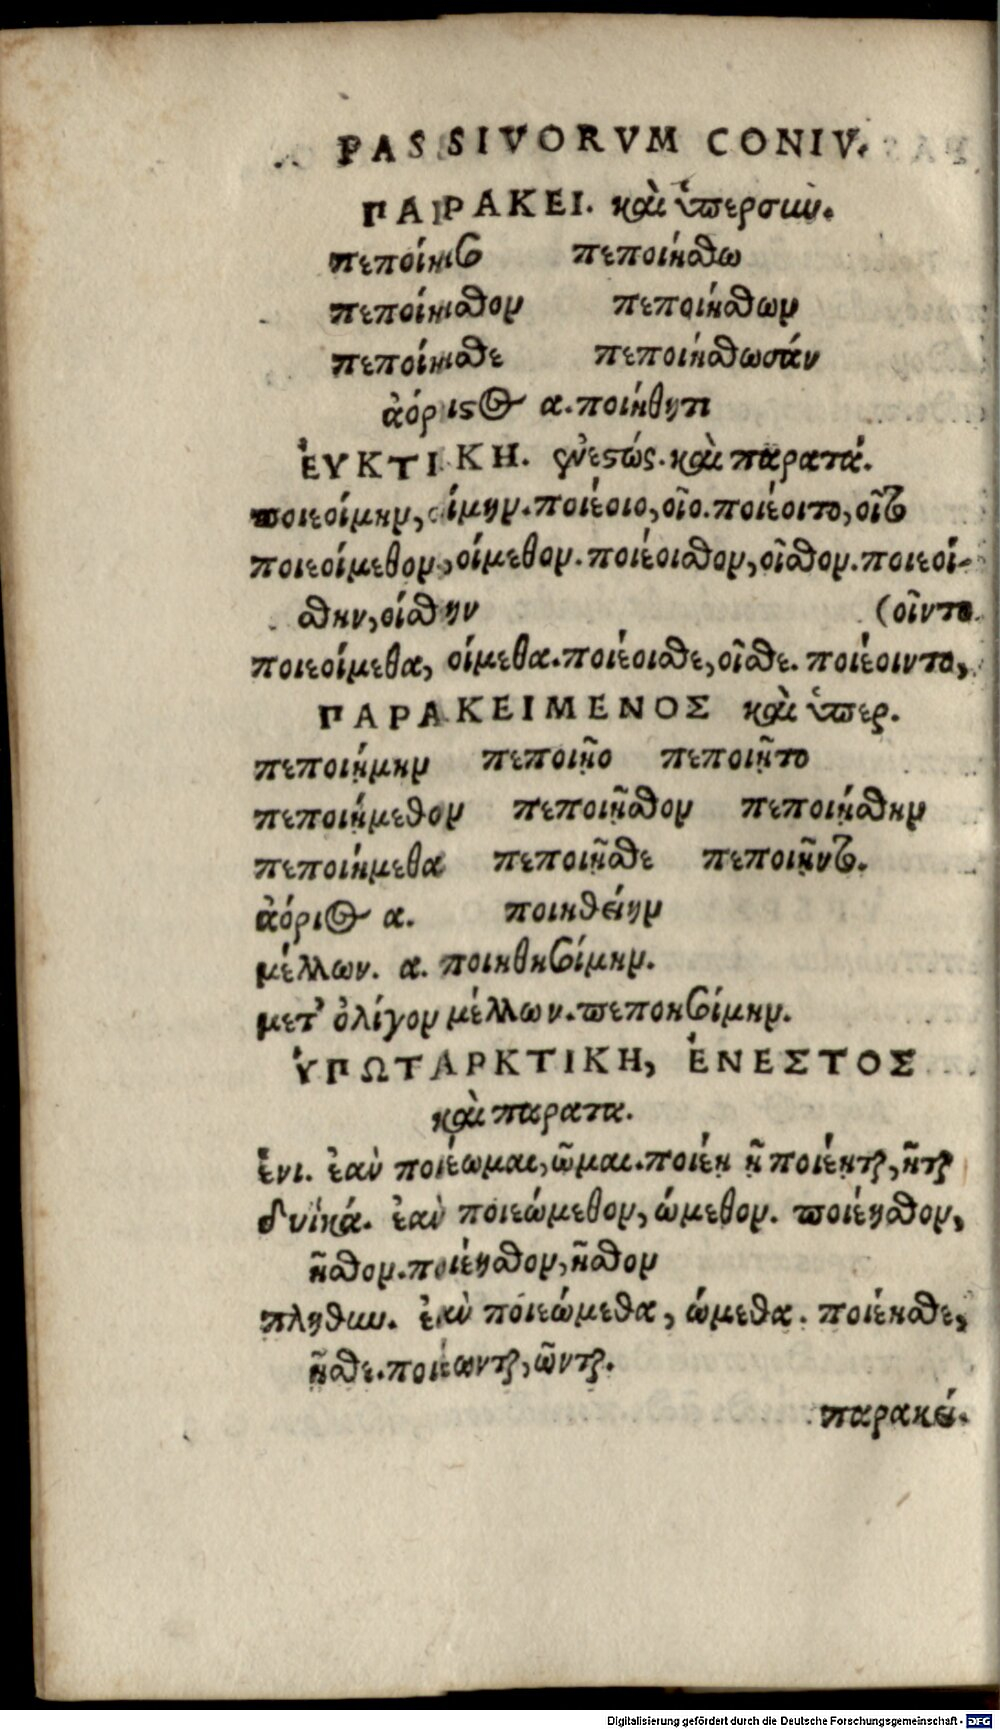 PASSIVORVM CONIV.
ΠΑΡΑΚΕΙ. καὶ ὑπερσυν.
πεποίησο πεποιήσθω
πεποίησθον πεποιήσθων
πεποίησθε πεποιήσθωσάν
ἀόριστος α. ποιήθητι
ἘΥΚΤΙΚΗ. ἐνεστώς. καὶ παρατά.
ποιεοίμην, οίμην. ποιέοιο, οῖο. ποιέοιτο, οῖτο
ποιεοίμεθον, οίμεθον. ποιέοισθον, οῖσθον. ποιεοί-
σθην, οίσθην (οῖντο
ποιεοίμεθα, οίμεθα. ποιέοισθε, οῖσθε. ποιέοιντο,
ΠΑΡΑΚΕΙΜΕΝΟΣ καὶ ὑπερ.
πεποιῄμην πεποιῇο πεποιῇτο
πεποιῄμεθον πεποιῇσθον πεποιῄσθην
πεποιῄμεθα πεποιῇσθε πεποιῇντο.
ἀόριστος α. ποιηθείην
μέλλων. α. ποιηθησοίμην.
μετ' ὀλίγον μέλλων. πεποησοίμην.
ὙΠΩΤΑΡΚΤΙΚΗ, ἘΝΕΣΤΟΣ
καὶ παρατα.
ἑνι. ἐαὺ ποιέωμαι, ῶμαι. ποιέῃ ῇ ποιέηται, ῆται
δυϊκά. ἐαὺ ποιεώμεθον, ώμεθον. ποιέησθον,
ῆσθον. ποιέησθον, ῆσθον
πληθυν. ἐαὺ ποιεώμεθα, ώμεθα. ποιέησθε,
ῆσθε. ποιέωνται, ῶνται.
παρακεί.
Digitalisierung gefördert durch die Deutsche Forschungsgemeinschaft - DFG